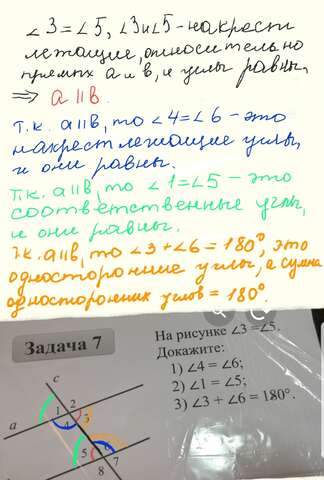 ∠3 = ∠5, ∠3 и ∠5 - накрест
лежащие, относительно
прямых a и b, и углы равны,
⇒ a || b.
Т.к. a || b, то ∠4 = ∠6 - это
накрест лежащие углы,
и они равны.
Т.к. a || b, то ∠1 = ∠5 - это
соответственные углы,
и они равны.
Т.к. a || b, то ∠3 + ∠6 = 180°, это
односторонние углы, а сумма
односторонних углов = 180°.
Задача 7
На рисунке ∠3 = ∠5.
Докажите:
1) ∠4 = ∠6;
2) ∠1 = ∠5;
3) ∠3 + ∠6 = 180°.
c
1 2
a
4 3
5 6
7
8